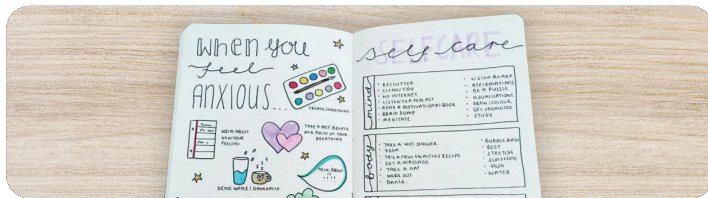 When you
feel
ANXIOUS...
WRITE ABOUT
HOW YOUR
FEELING
TAKE A DEEP BREATH
AND FOCUS ON YOUR
BREATHING
DRINK WATER / CHAMOMILE
TALK ABOUT
IT
SELFCARE
self care
mind
DECLUTTER
NO INTERNET
LISTEN TO PODCAST
READ A MOTIVATIONAL BOOK
BRAIN DUMP
MEDITATE
VISION BOARD
AFFIRMATIONS
DO A PUZZLE
VISUALISATIONS
DRAW / COLOUR
GET ORGANISED
STUDY
body
TAKE A HOT SHOWER
YOGA
TRY A NEW HEALTHY RECIPE
GET A MASSAGE
TAKE A NAP
WORK OUT
DANCE
BUBBLE BATH
REST
STRETCH
SUNSHINE
HUG
WATER